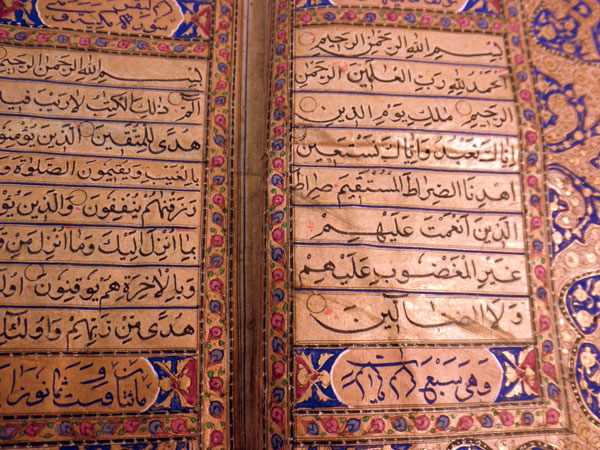 بسم الله الرحمن الرحيم
الحمد لله رب العلمين الرحمن
الرحيم ملك يوم الدين
اياك نعبد واياك نستعين
اهدنا الصراط المستقيم صراط
الذين انعمت عليهم
غير المغضوب عليهم
ولا الضالين
وهي سبع
بسم الله الرحمن الرحيم
الم ذلك الكتب لا ريب فيه
هدى للمتقين الذين يؤمنون
بالغيب ويقيمون الصلوة
رزقنهم ينفقون والذين
بما انزل اليك وما انزل من
وبالاخرة هم يوقنون
هدى من ربهم واولئك